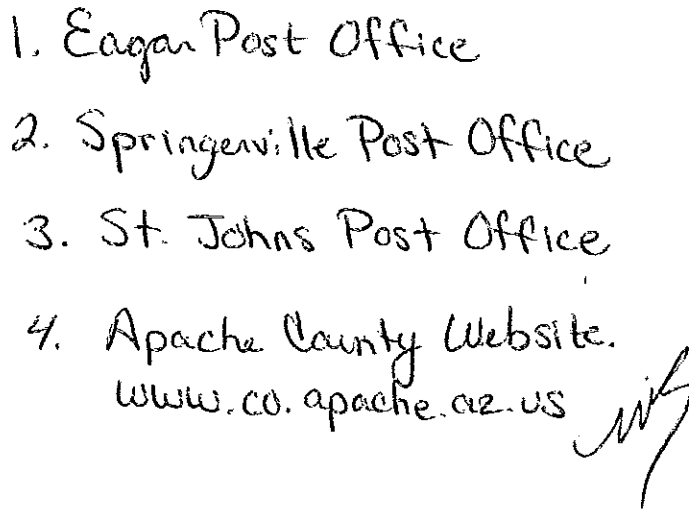 1. Eagar Post Office
2. Springerville Post Office
3. St. Johns Post Office
4. Apache County Website.
www.co.apache.az.us